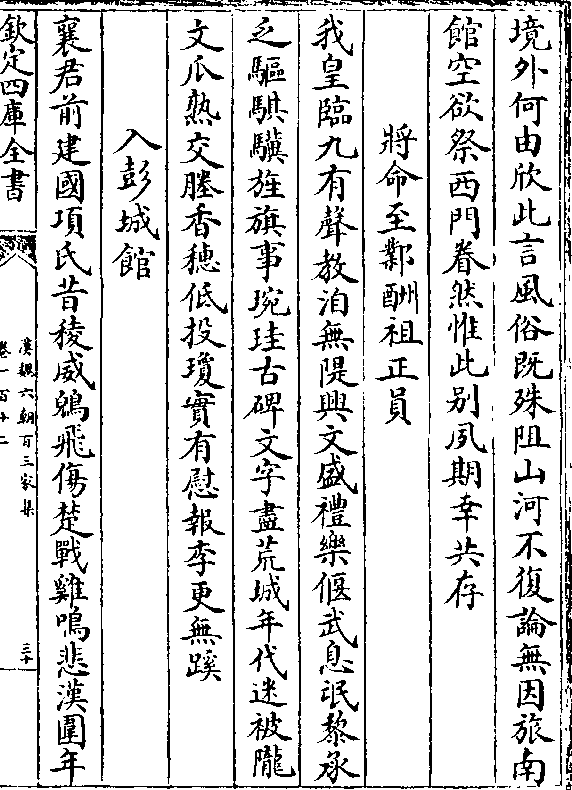 境外何由欣此言風俗既殊阻山河不復論無因旅南
館空欲祭西門眷然惟此别夙期幸共存
將命至鄴酬祖正員
我皇臨九有聲教洎無隄興文盛禮樂偃武息氓黎承
乏驅騏驥旌旗事琬珪古碑文字盡荒城年代迷被隴
文瓜熟交塍香穗低投瓊實有慰報李更無蹊
入彭城館
襄君前建國項氏昔稜威鵷飛傷楚戰雞鳴悲漢圍年
欽定四庫全書
漢魏六朝百三家集
卷一百十二
三十